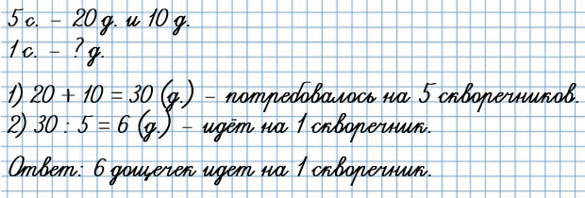 5 с. – 20 д. и 10 д.
1 с. – ? д.
1) 20 + 10 = 30 (д.) – потребовалось на 5 скворечников.
2) 30 : 5 = 6 (д.) – идёт на 1 скворечник.
Ответ: 6 дощечек идет на 1 скворечник.